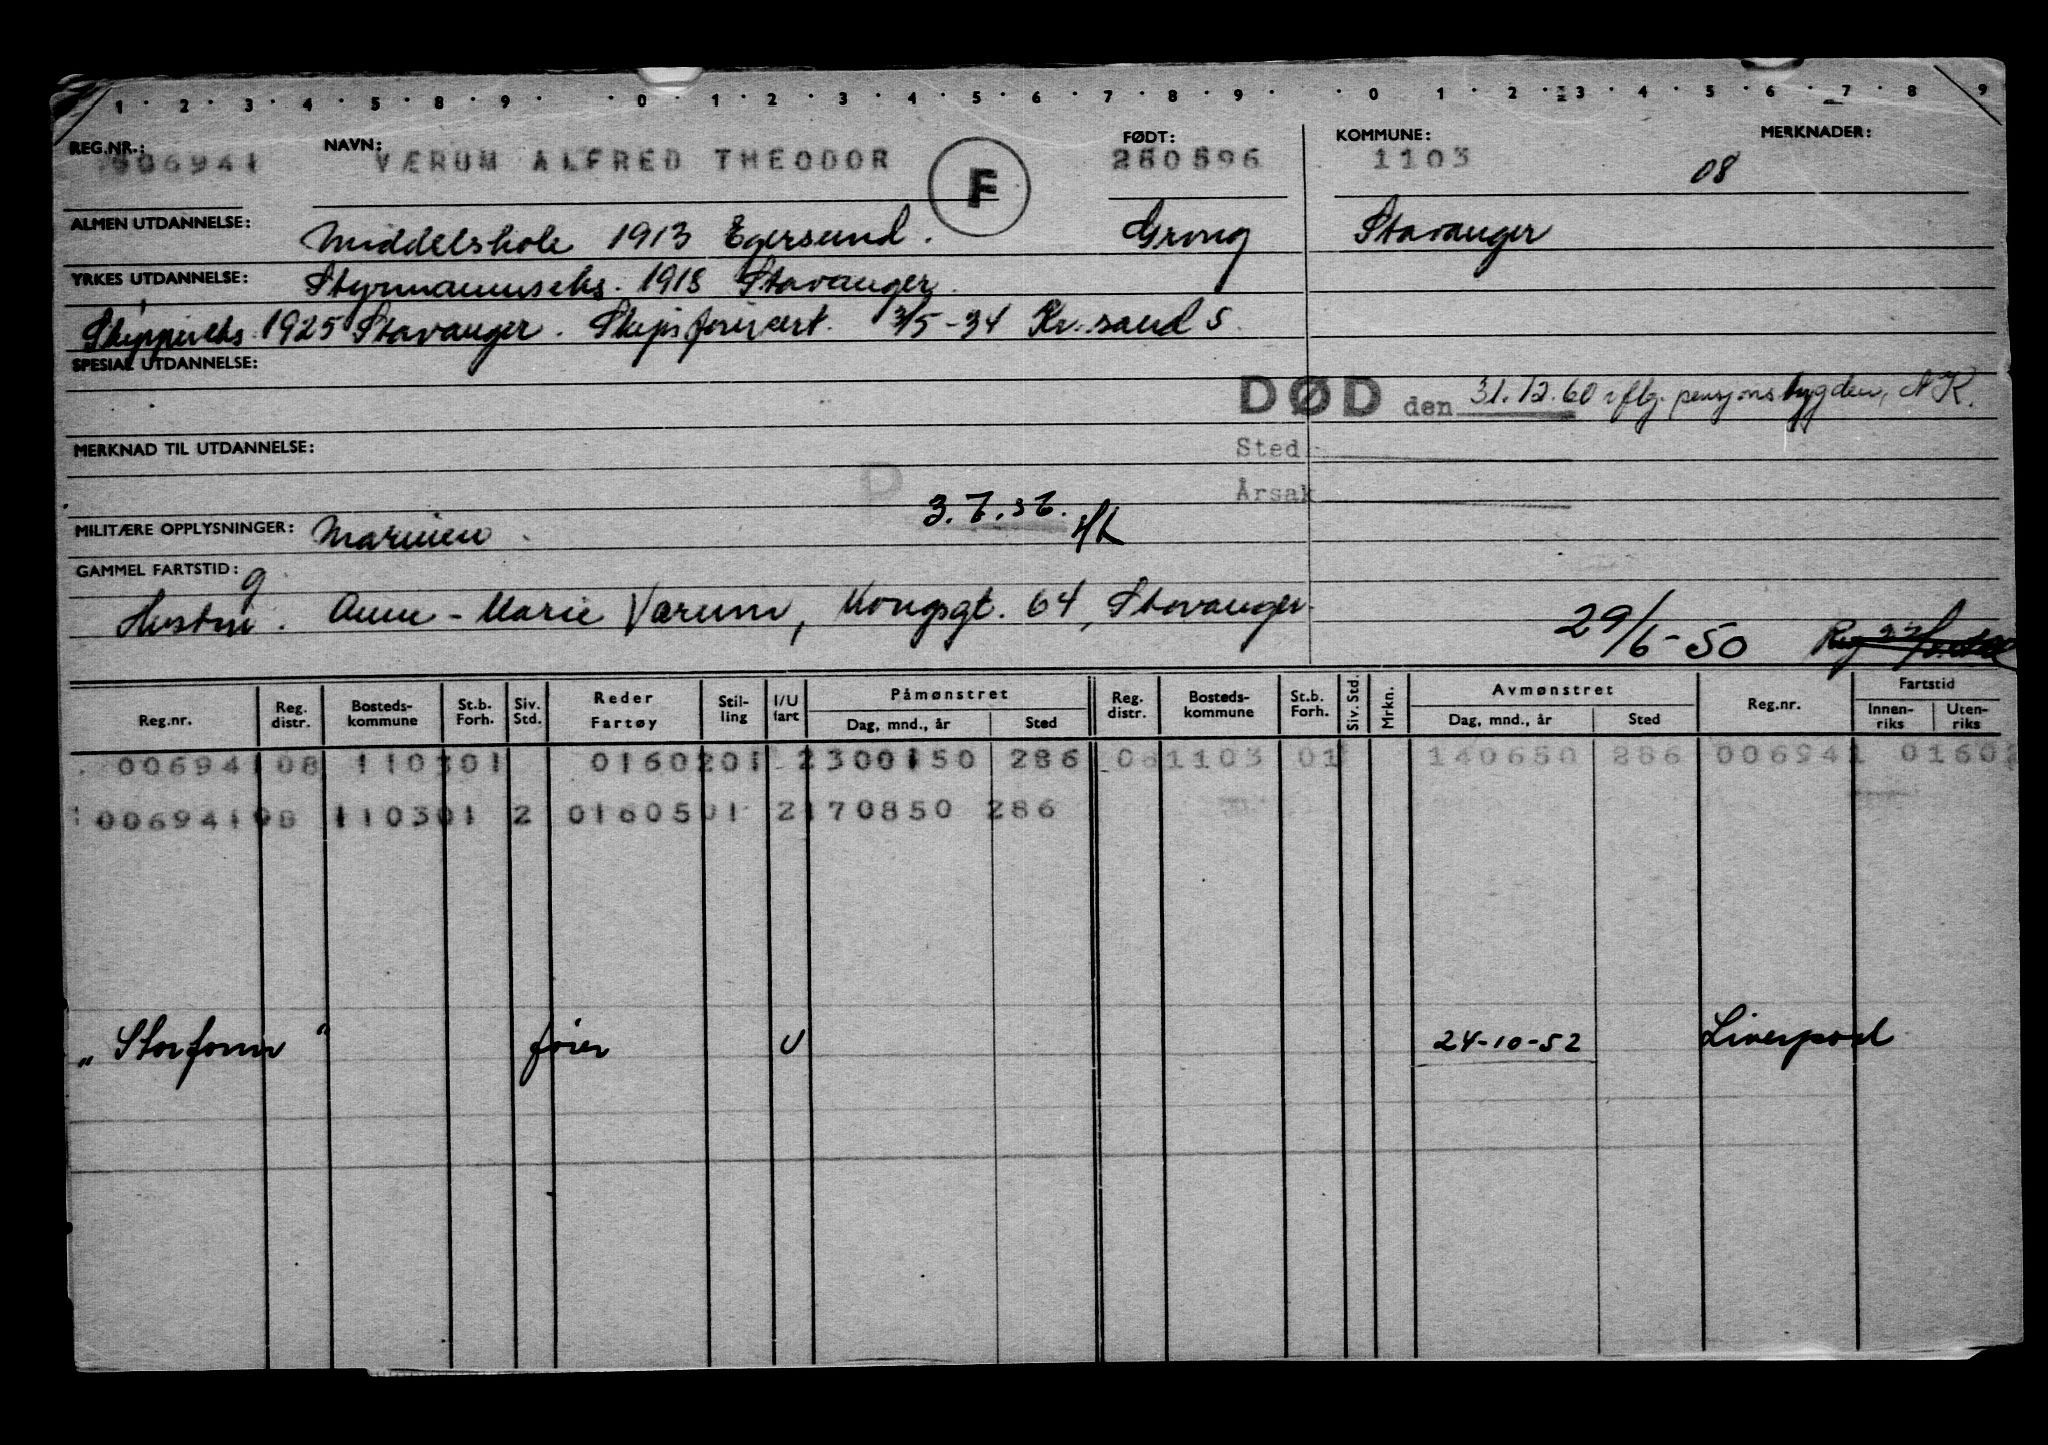 1 · 2 · 3 · 4 · 5 · 8 · 9 · · 0 · 1 · 2 · 3 · 4 · 5 · 6 · 7 · 8 · 9 · · 0 · 1 · 2 · 3 · 4 · 5 · 6 · 7 · 8 · 9
REG.NR.: NAVN: FØDT: KOMMUNE: MERKNADER:
006941 VÆRUM ALFRED THEODOR F 280896 1103 08
ALMEN UTDANNELSE: Middelskole 1913 Egersund. Grong Stavanger
YRKES UTDANNELSE: Styrmannseks. 1918 Stavanger.
Skippereks. 1925 Stavanger. Skipsførercert. 3/5-34 Kr.sand S.
SPESIAL UTDANNELSE:
DØD den 31.12.60 iflg. pensjonstrygden, NK.
MERKNAD TIL UTDANNELSE: Sted
P Årsak
MILITÆRE OPPLYSNINGER: Marinen.
GAMMEL FARTSTID: g
Hustru. Anne-Marie Værum, Kongsgt. 64, Stavanger.
29/6-50 Reg
Reg.nr. Reg. distr. Bosteds-kommune St.b. Forh. Siv. Std. Reder Fartøy Stil-ling I/U fart Påmønstret Dag, mnd., år Sted Reg. distr. Bosteds-kommune St.b. Forh. Siv. Std. Mrkn. Avmønstret Dag, mnd., år Sted Reg.nr. Fartstid Innen-riks Uten-riks
006941 08 1103 01 01602 01 2 300150 286 08 1103 01 140650 286 006941 01602
006941 08 1103 01 2 01605 01 2 170850 286
"Storfonn" fører U 24-10-52 Liverpool